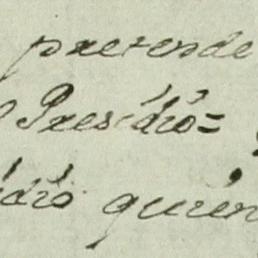 pretende
Presidio=
idio querer